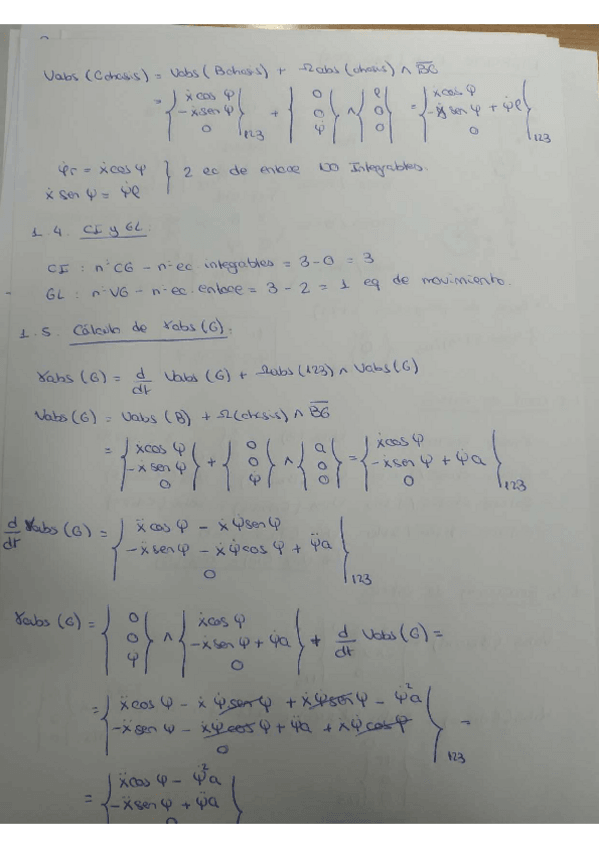 Vabs (Cchasis) = Vabs (Bchasis) + Ωabs (chasis) ∧ B̅G̅
= { ẋcos φ, -ẋsen φ, 0 }123 + { 0, 0, φ̇ } ∧ { ℓ, 0, 0 } = { ẋcos φ, -ẋsen φ + φ̇ℓ, 0 }123
φ̇r = ẋcos φ
ẋ sen φ = φ̇ℓ } 2 ec de enlace NO Integrables.
1.4. CI y GL.
CI : nºCG - nº ec. integables = 3 - 0 = 3
GL : nºVG - nº ec. enlace = 3 - 2 = 1 eq de movimiento.
1.5. Cálculo de γabs (G).
γabs (G) = d/dt Vabs (G) + Ωabs (123) ∧ Vabs (G)
Vabs (G) = Vabs (B) + Ω(chasis) ∧ B̅G̅
= { ẋcos φ, -ẋsen φ, 0 } + { 0, 0, φ̇ } ∧ { a, 0, 0 } = { ẋcos φ, -ẋsen φ + φ̇a, 0 }123
d/dt Vabs (G) = { ẍcos φ - ẋφ̇sen φ, -ẍsen φ - ẋφ̇cos φ + φ̈a, 0 }123
γabs (G) = { 0, 0, φ̇ } ∧ { ẋcos φ, -ẋsen φ + φ̇a, 0 } + d/dt Vabs (G) =
= { ẍcos φ - ẋφ̇sen φ + ẋφ̇sen φ - φ̇²a, -ẍsen φ - ẋφ̇cos φ + φ̈a + ẋφ̇cos φ, 0 }123 =
= { ẍcos φ - φ̇²a, -ẍsen φ + φ̈a, 0 }